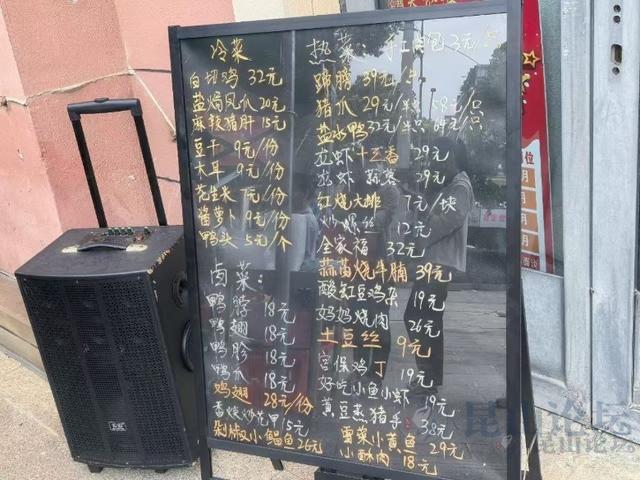 冷菜
白切鸡 32元
盐焗凤爪 20元
麻辣猪肝 15元
豆干 9元/份
木耳 9元/份
花生米 7元/份
酱萝卜 9元/份
鸭头 5元/个
卤菜:
鸭脖 18元
鸭翅 18元
鸭胗 18元
鸭爪 18元
鸡翅 28元/份
香辣炒花甲 15元
剁椒小鲳鱼 26元
热菜 手工肉包 3元/只
蹄膀 39元/只
猪爪 29元/半只 58元/只
盐水鸭 32元/半只 64元/只
龙虾 十三香 29元
龙虾 蒜蓉 29元
红烧大排 7元/块
炒螺丝 12元
全家福 32元
蒜苗烧牛腩 39元
酸缸豆鸡杂 19元
妈妈烧肉 26元
土豆丝 9元
宫保鸡丁 19元
好吃小鱼小虾 19元
黄豆蒸猪手 38元
雪菜小黄鱼 29元
小酥肉 18元
昆山论坛
昆山论坛